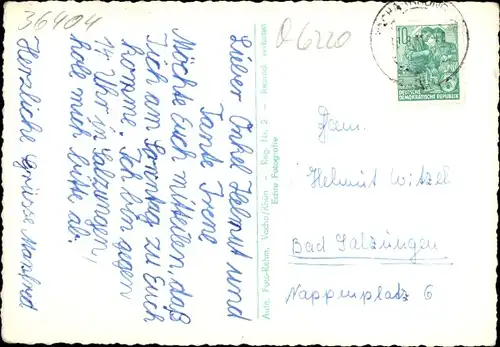 36404
Q6220
Lieber Onkel Helmut und
Tante Irene
Möchte Euch mitteilen, daß
Ich am Sonntag zu Euch
komme. Ich bin gegen
14 Uhr in Salzungen,
hole mich bitte ab.
Herzliche Grüsse Manfred
Auln. Foto-Rahm, Vacha/Rhön - Reg. Nr. 2 - Freimal verboten
Echte Fotografie
10
DEUTSCHE
DEMOKRATISCHE REPUBLIK
Fam.
Helmut Witzel
Bad Salzungen
Nappenplatz 6